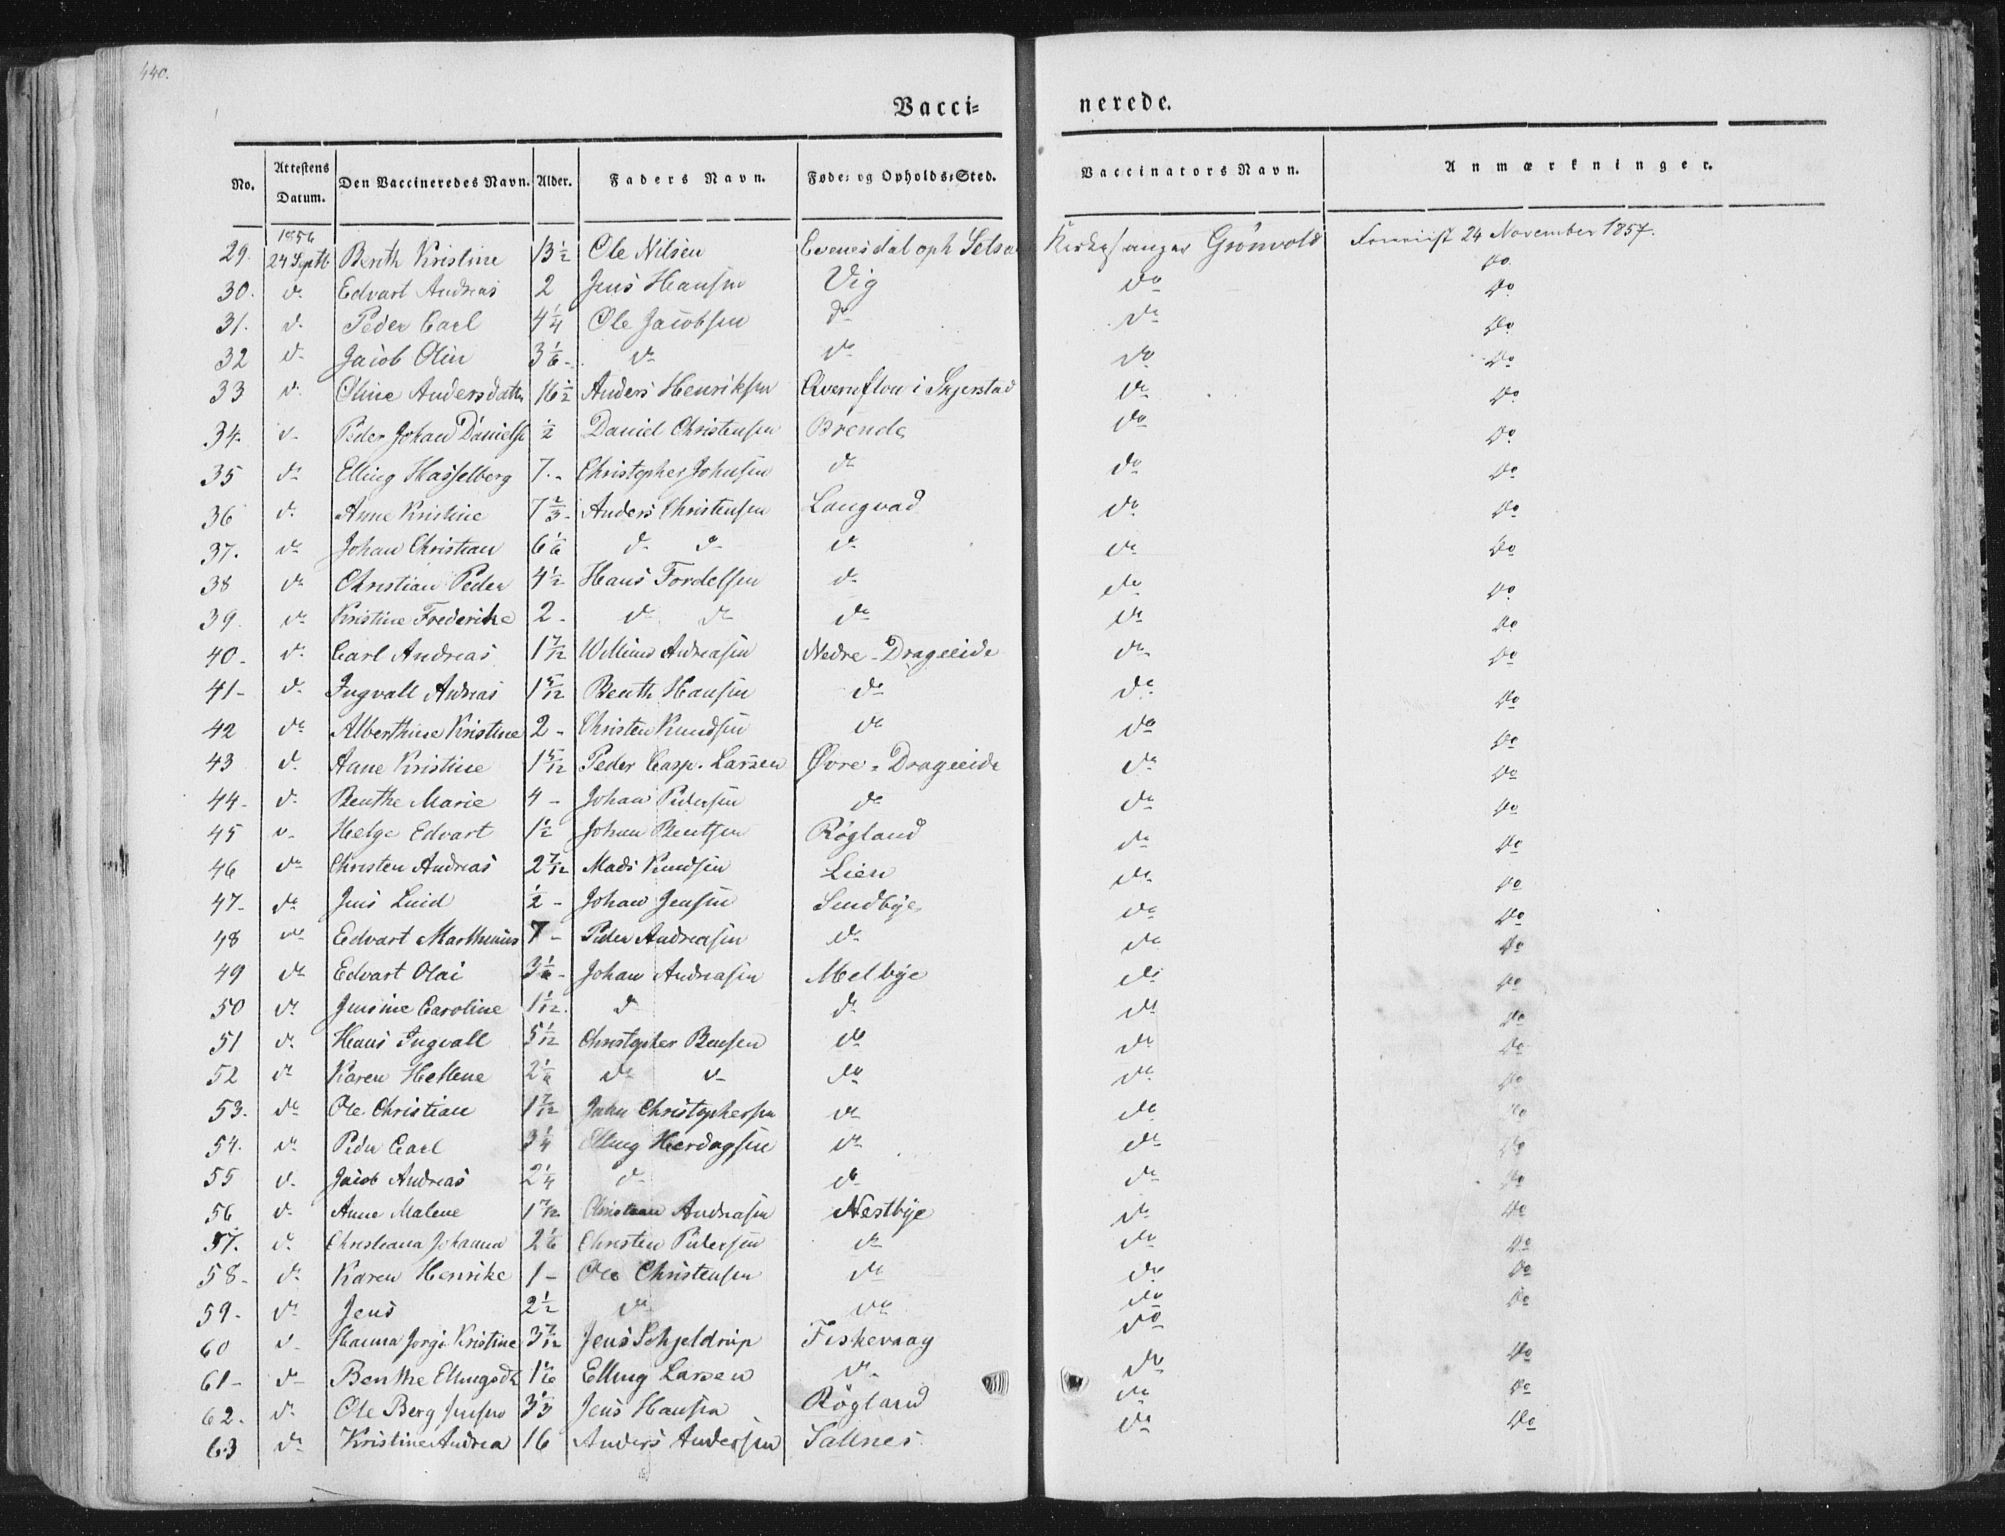 440.
Vacci= nerede.
No. Attestens Datum. Den Vaccineredes Navn. Alder. Faders Navn. Føde= og Opholds=Sted. Vaccinators Navn. Anmærkninger.
1856
29. 24 Septb Benth Kristine 13 1/2 Ole Nilsen Evenesdal oph Kirkesanger Grönvold 24 November 1857.
30. do Edvart Andreas 2 Jens Hansen Vig do do
31. do Peder Carl 4 1/4 Ole Jacobsen do do do
32 do Jacob Olin 3 1/6 do do do do
33 do Oline Andersdatter 16 1/2 Anders Henriksen i Skjerstad do do
34. do Peder Johan Danielsen 1/2 Daniel Christensen Brende do do
35 do Elling Hasselberg 7.- Christopher Johnsen do do do
36 do Anne Kristine 7 2/3 Anders Christensen Langvad do do
37. do Johan Christian 6 1/6 do do do do do
38 do Christian Peder 4 1/2 Hans Tordelsen do do do
39. do Kristine Frederike 2 - do do do do do
40- do Carl Andreas 1 7/12 Willum Andreasen Nedre-Drageeide do do
41- do Ingvall Andreas 1 5/12 Benth Hansen do do do
42 do Alberthine Kristine 2 - Christen Knudsen do do do
43 do Anne Kristine 1 5/12 Peder Casp. Larsen Øvre-Drageeide do do
44- do Benthe Marie 4 - Johan Pedersen do do do
45 do Helge Edvart 1 1/2 Johan Bentsen Røgland do do
46 do Christen Andreas 2 7/12 Mads Knudsen Lien do do
47- do Jens Luid 1/2 - Johan Jensen Sundbye do do
48 do Edvart Marthinius 7 - Peder Andreasen do do do
49 do Edvart Olai 3 1/6 - Johan Andreasen Melbye do do
50 do Jensine Caroline 1 1/12. do do do do
51 do Hans Ingvall 5 1/12 Christopher Bensen do do do
52 do Karen Hellene 2 1/6 do do do do do
53. do Ole Christian 1 7/12 John Christophersen do do do
54. do Peder Carl 3 1/4 Elling Herdagsen do do do
55 do Jacob Andreas 2 1/4 do do do do
56 do Anne Malene 1 7/12 Christian Andreasen Nestbye do do
57. do Christiana Johanna 2 1/6 Christen Pedersen do do do
58- do Karen Henrike 1 - Ole Christensen do do do
59. do Jens 2 1/2 do do do do
60 do Hanna Jorgi Kristine 3 7/12 Jens Schjeldrup Fiskevaag do do
61- do Benthe Ellingsdt 1 1/6 Elling Larsen do do do
62. do Ole Berg Jensen 3 1/3 Jens Hansen Røgland do do
63 do Kristine Andrea 16 Anders Andersen Sallnes do